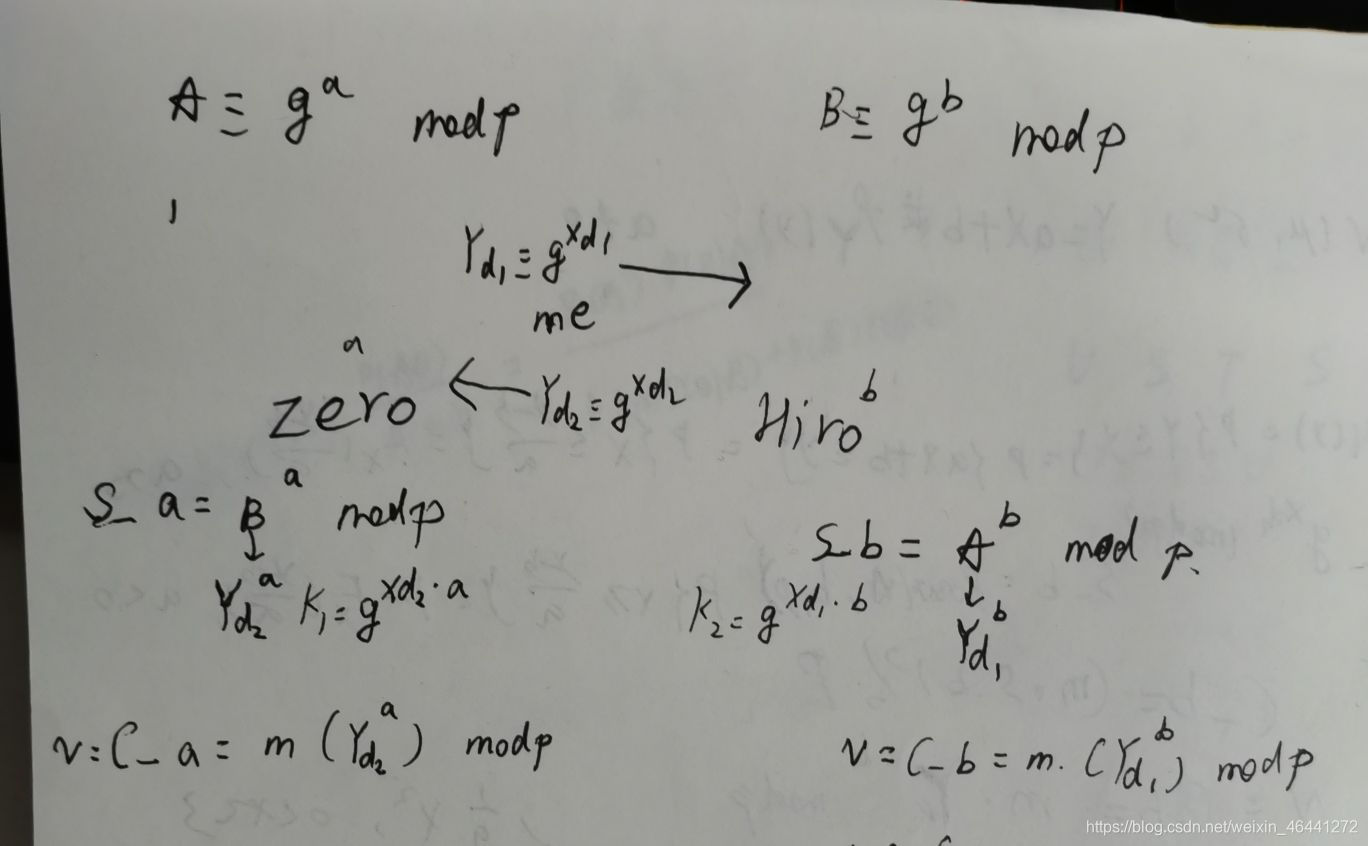 A ≡ g^a mod p B ≡ g^b mod p
Y_d₁ ≡ g^xd₁
me
zero^a Y_d₂ ≡ g^xd₂ Hiro^b
S_a = B^a mod p S_b = A^b mod p
Y_d₂^a K₁ = g^xd₂·a K₂ = g^xd₁·b Y_d₁^b
v = C_a = m (Y_d₂^a) mod p v = C_b = m. (Y_d₁^b) mod p
https://blog.csdn.net/weixin_46441272